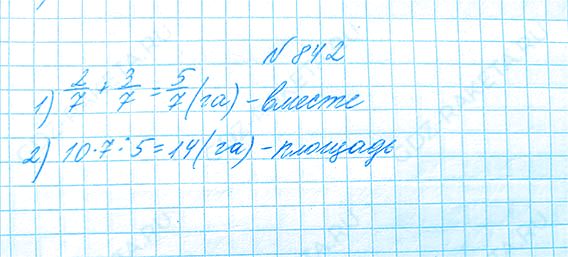 № 842
1) 2/7 + 3/7 = 5/7 (га) - вместе
2) 10·7:5=14 (га) - площадь